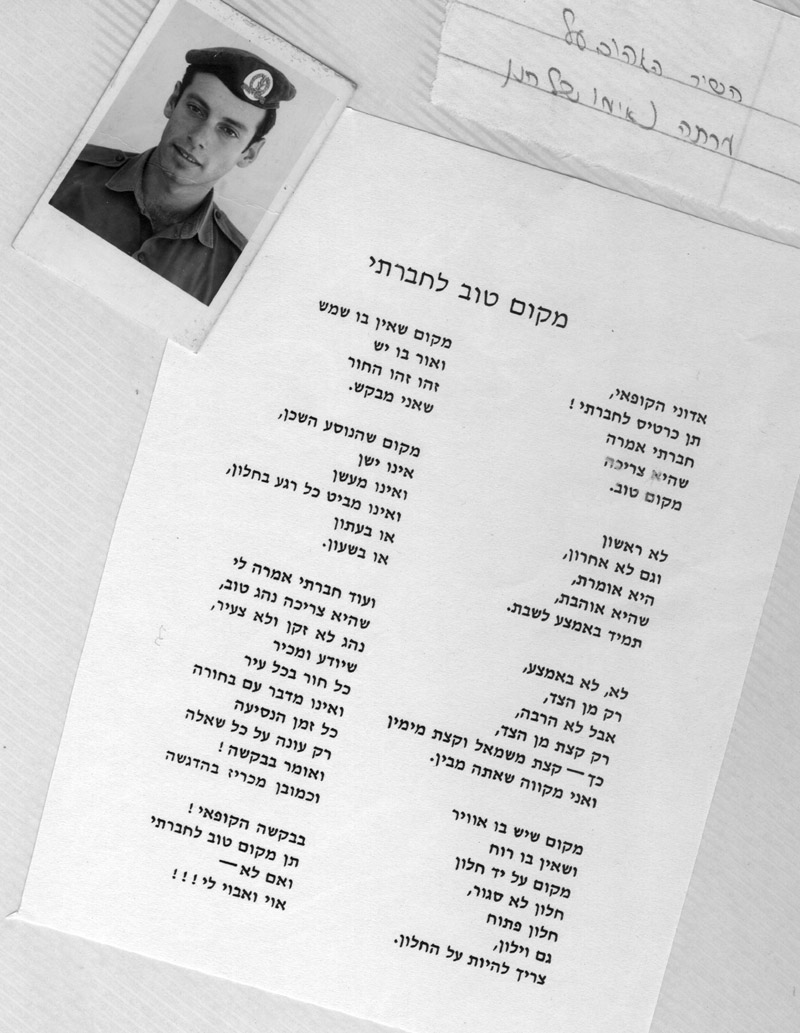 השיר האהוב על
מרתה (אימו של חנן
מקום טוב לחברתי
אדוני הקופאי,
תן כרטיס לחברתי!
חברתי אמרה
שהיא צריכה
מקום טוב.
לא ראשון
וגם לא אחרון,
היא אומרת,
שהיא אוהבת,
תמיד באמצע לשבת.
לא, לא באמצע,
רק מן הצד,
אבל לא הרבה,
רק קצת מן הצד,
כך — קצת משמאל וקצת מימין
ואני מקווה שאתה מבין.
מקום שיש בו אוויר
ושאין בו רוח
מקום על יד חלון
חלון לא סגור,
חלון פתוח
גם וילון,
צריך להיות על החלון.
מקום שאין בו שמש
ואור בו יש
זהו זהו החור
שאני מבקש.
מקום שהנוסע השכן,
אינו ישן
ואינו מעשן
ואינו מביט כל רגע בחלון,
או בעתון
או בשעון.
ועוד חברתי אמרה לי
שהיא צריכה נהג טוב,
נהג לא זקן ולא צעיר,
שיודע ומכיר
כל חור בכל עיר
ואינו מדבר עם בחורה
כל זמן הנסיעה
רק עונה על כל שאלה
ואומר בבקשה!
וכמובן מכריז בהדגשה
בבקשה הקופאי!
תן מקום טוב לחברתי
ואם לא —
אוי ואבוי לי!!!